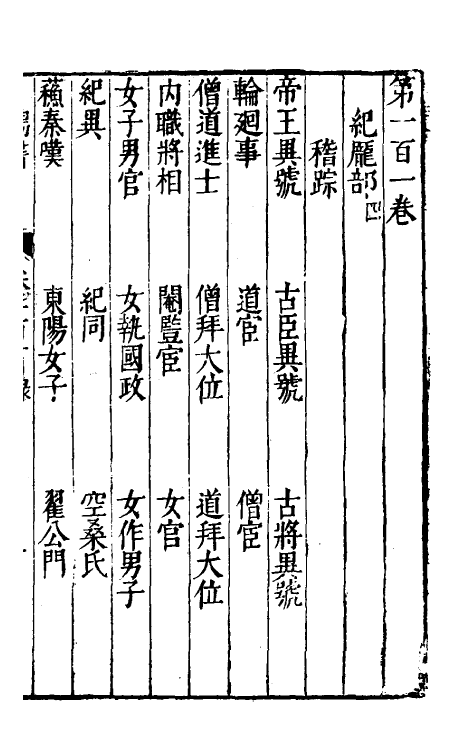 第一百一卷
紀龎部 四
稽踪
帝王異號 古臣異號 古將異號
輪廻事 道宦 僧宦
僧道進士 僧拜大位 道拜大位
内職將相 閹監宦 女官
女子男官 女執國政 女作男子
紀異 紀同 空桑氏
蘓秦嘆 東陽女子 翟公門